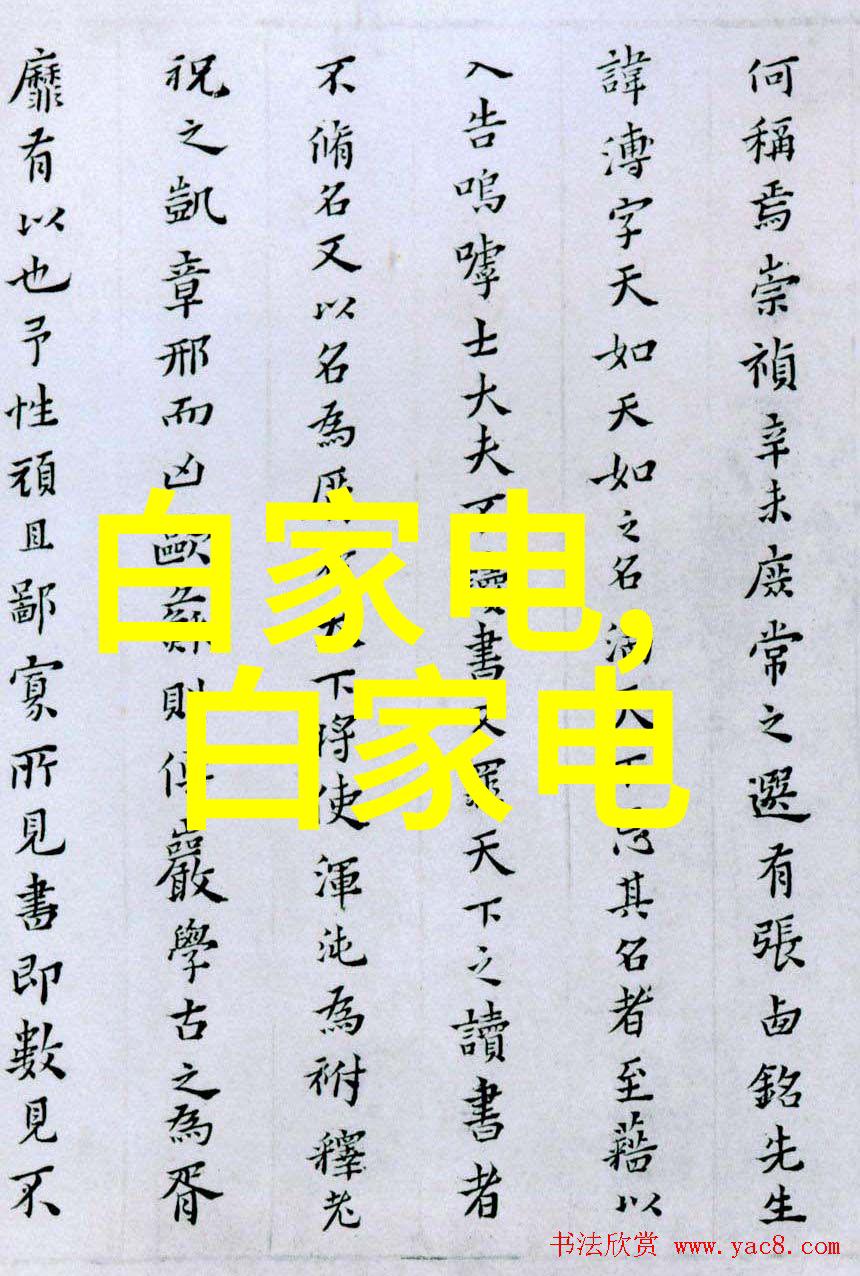 何稱焉崇禎辛未庶常之選有張西銘先生
諱溥字天如天如之名滿天下爲其名者至藉以
入告嗚嘑士大夫不讀書又罪天下之讀書者
不脩名又以名為厲天下將使渾沌為祔釋老
祝之凱章邢而凶歐蘇則但嚴學古之為胥
靡有以也予性頑且鄙寡所見書即數見不
白家电,
白家电
书法欣赏 www.yac8.com